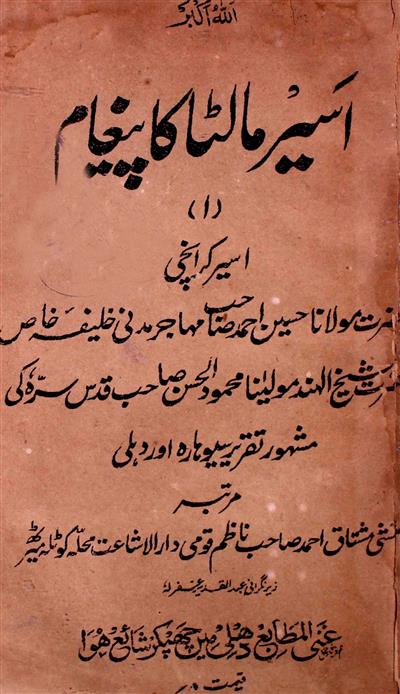 اللہ اکبر
اسیر مالٹا کا پیغام
(۱)
اسیر کراچی
حضرت مولانا حسین احمد صاحب مہاجر مدنی خلیفہ خاص
حضرت شیخ الہند مولینا محمود الحسن صاحب قدس سرہ کی
مشہور تقریر سیوہارہ اور دہلی
مرتبہ
منشی مشتاق احمد صاحب ناظم قومی دار الاشاعت محلہ کوٹلہ میرٹھ
زیر نگرانی عبد القدیر عفرلہ
غنی المطابع دھلی میں چھپکر شائع ھوا
قیمت